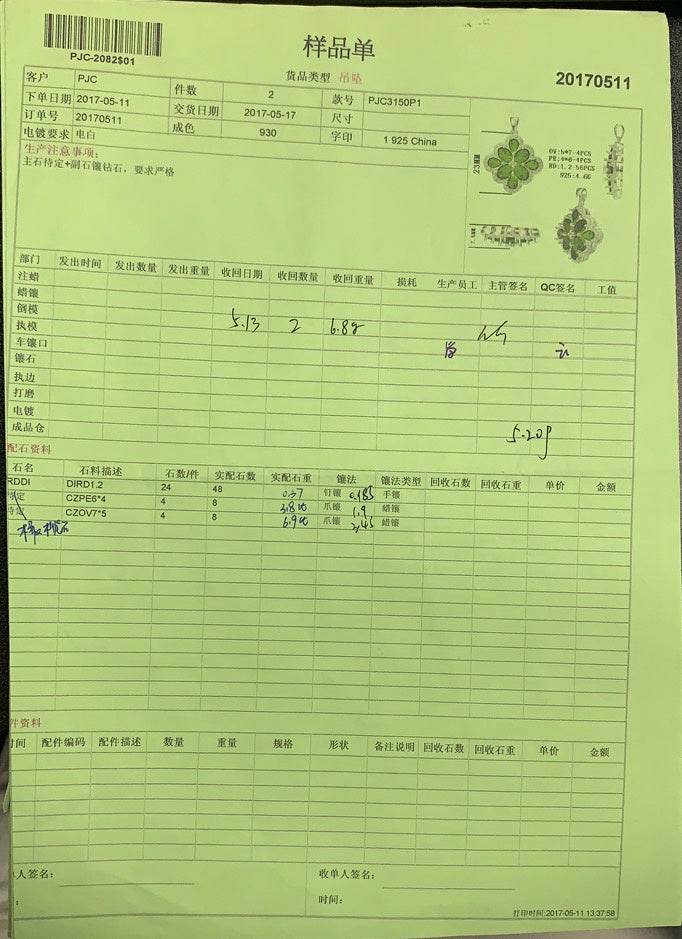 PJC-2082$01
样品单
货品类型 吊坠
20170511
客户 PJC 件数 2 款号 PJC3150P1
下单日期 2017-05-11 交货日期 2017-05-17 尺寸
订单号 20170511 成色 930 字印 1 925 China
电镀要求 电白
生产注意事项:
主石待定+副石镶钻石，要求严格
23MM
OV:5*7-4PCS
PE:4*6-4PCS
RD:1.2-56PCS
925:4.6G
部门 发出时间 发出数量 发出重量 收回日期 收回数量 收回重量 损耗 生产员工 主管签名 QC签名 工值
注蜡
蜡镶
倒模
执模 5.13 2 6.8g
车镶口
镶石
执边
打磨
电镀
成品仓 5.20g
配石资料
石名 石料描述 石数/件 实配石数 实配石重 镶法 镶法类型 回收石数 回收石重 单价 金额
RDDI DIRD1.2 24 48 0.37 钉镶 0.185 手镶
待定 CZPE6*4 4 8 3.8ct 爪镶 1.9 蜡镶
待定 CZOV7*5 4 8 6.9ct 爪镶 3.45 蜡镶
件资料
时间 配件编码 配件描述 数量 重量 规格 形状 备注说明 回收石数 回收石重 单价 金额
人签名: 收单人签名:
: 时间:
打印时间:2017-05-11 13:37:58